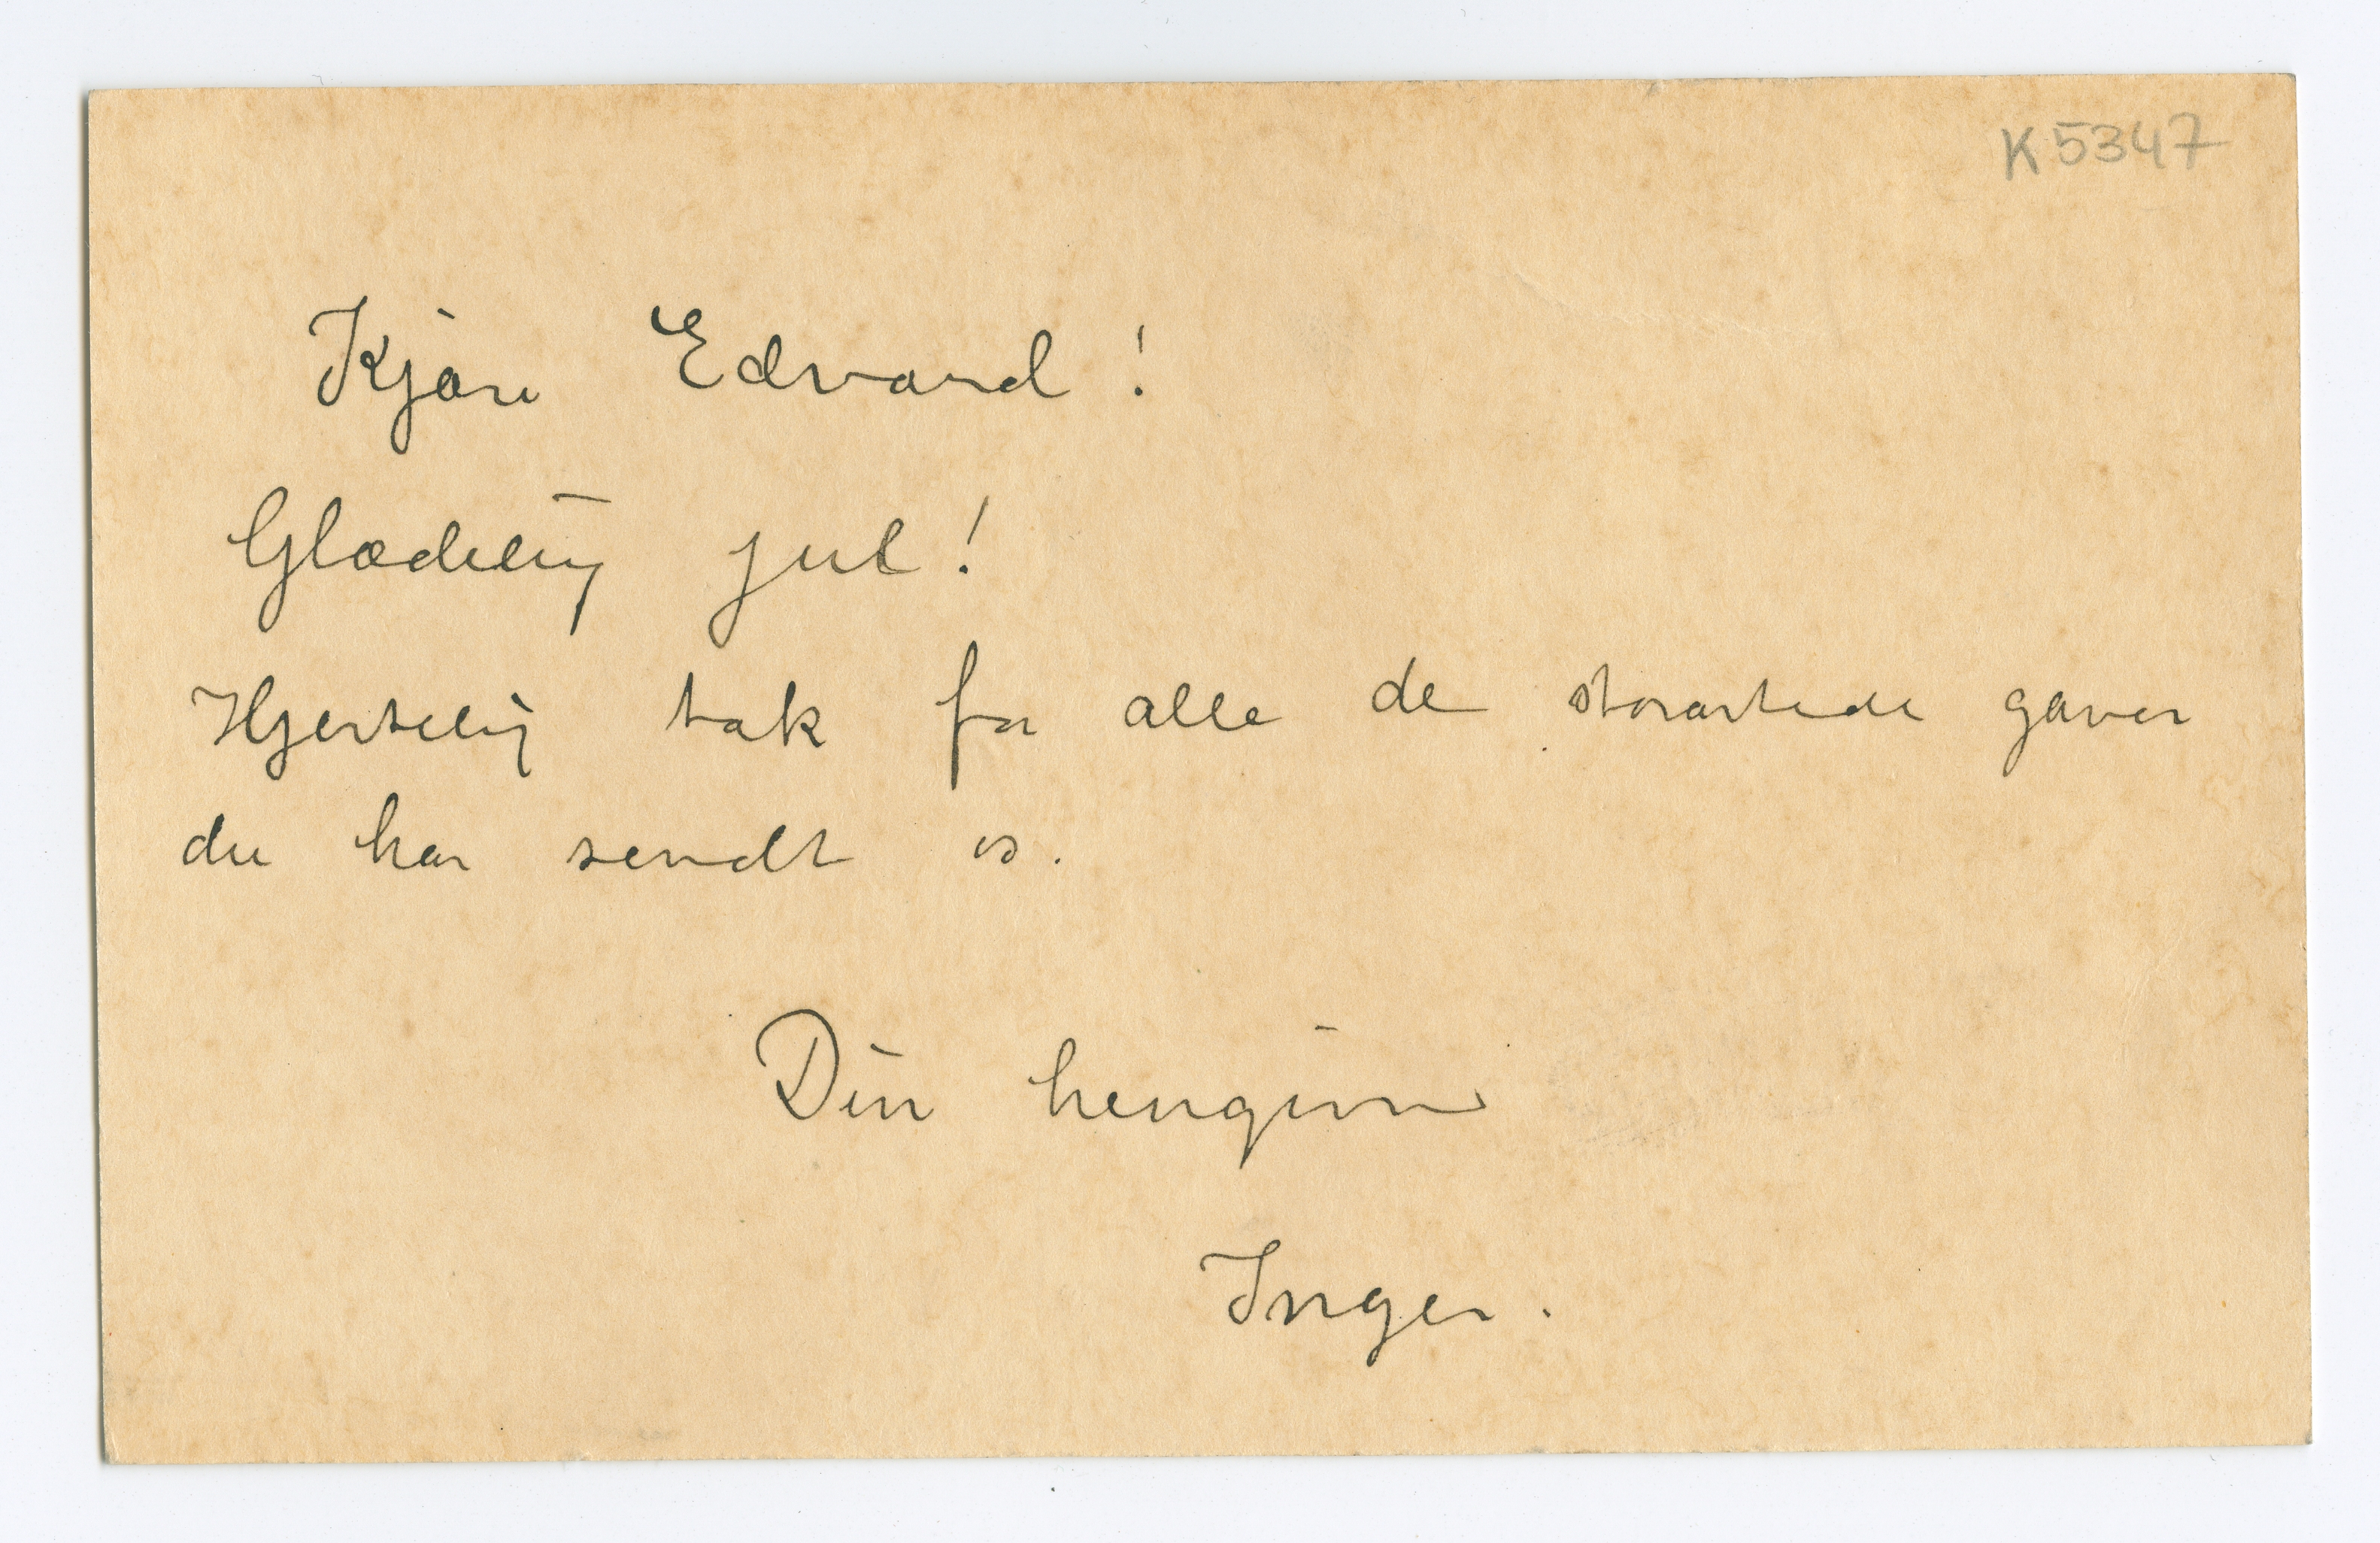 K 5347
Kjære Edvard!
Glædelig jul!
Hjertelig tak for alle de storartede gaver
du har sendt os.
Din hengivne
Inger.